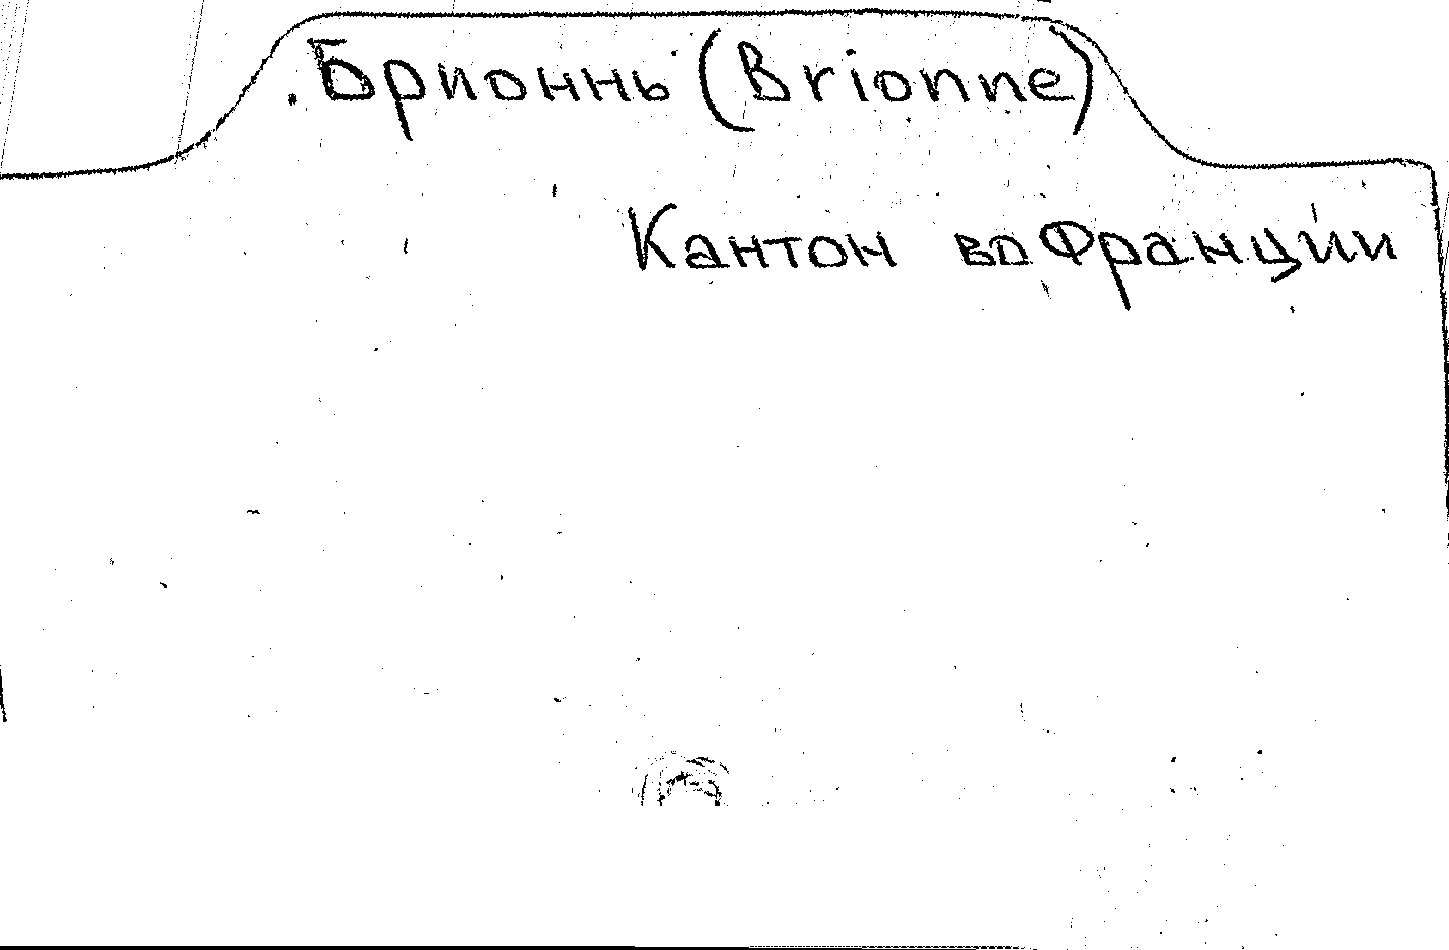 Брионнь (Brionne)
Кантон во Франции